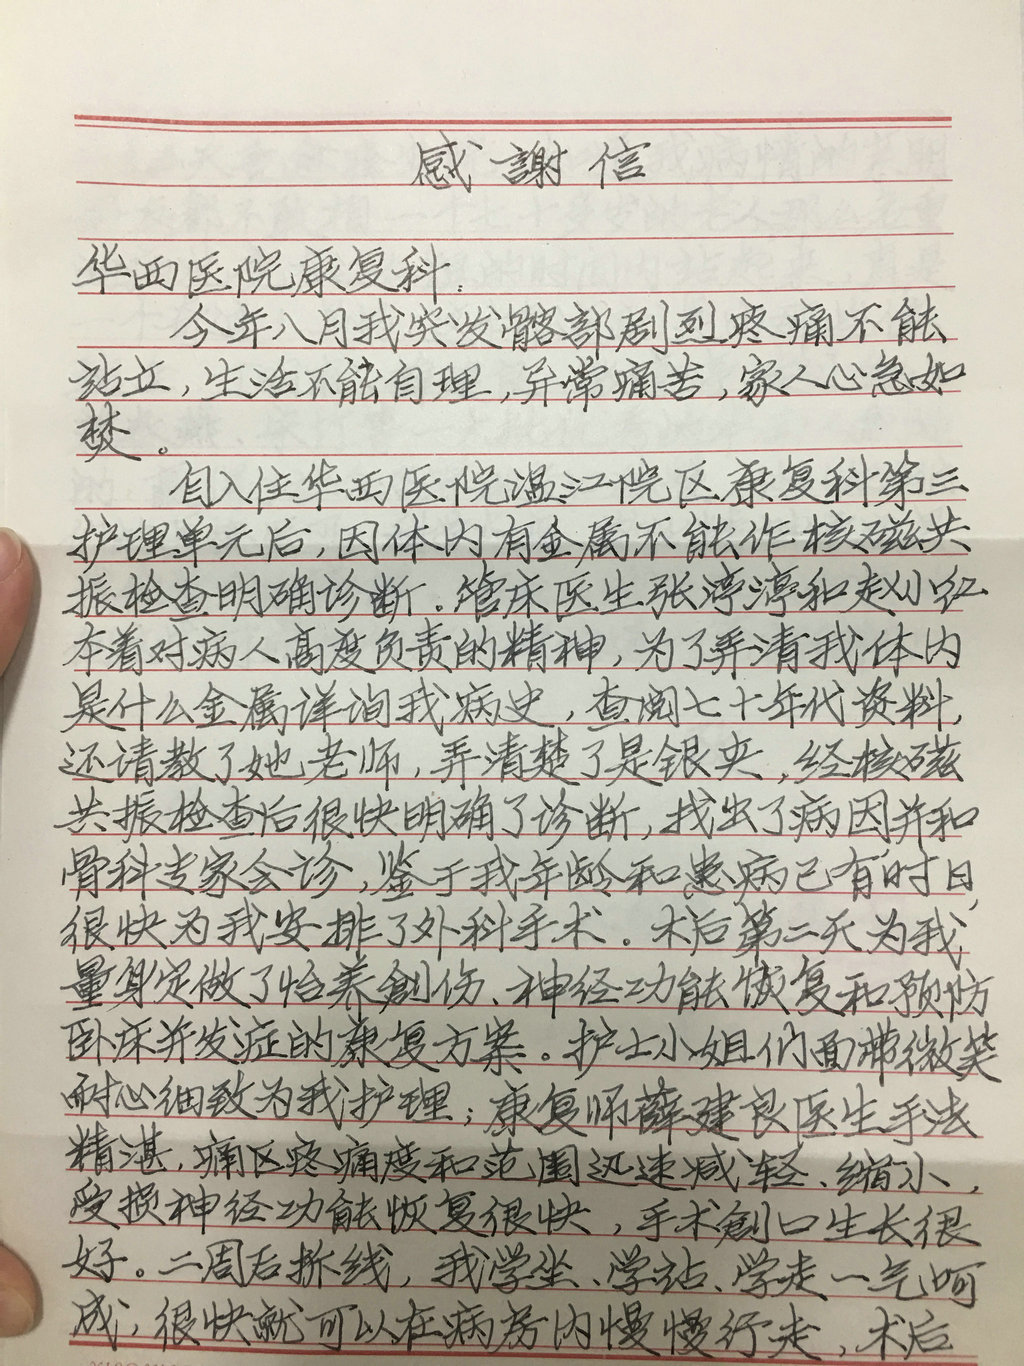 感謝信
华西医院康复科:
今年八月我突发髂部剧烈疼痛不能
站立,生活不能自理,异常痛苦,家人心急如
焚。
自入住华西医院温江院区康复科第三
护理单元后,因体内有金属不能作核磁共
振检查明确诊断。管床医生张渟渟和赵小红
本着对病人高度负责的精神,为了弄清我体内
是什么金属详询我病史,查阅七十年代资料,
还请教了她老师,弄清楚了是银夹,经核磁
共振检查后很快明确了诊断,找出了病因并和
骨科专家会诊,鉴于我年龄和患病已有时日,
很快为我安排了外科手术。术后第二天为我
量身定做了怡养創伤、神经功能恢复和预防
卧床并发症的康复方案。护士小姐们面带微笑
耐心细致为我护理;康复师薛建良医生手法
精湛,痛区疼痛度和范围迅速减轻、缩小,
受损神经功能恢复很快,手术創口生长很
好。二周后拆线,我学坐、学站、学走一气呵
成,很快就可以在病房内慢慢行走,术后